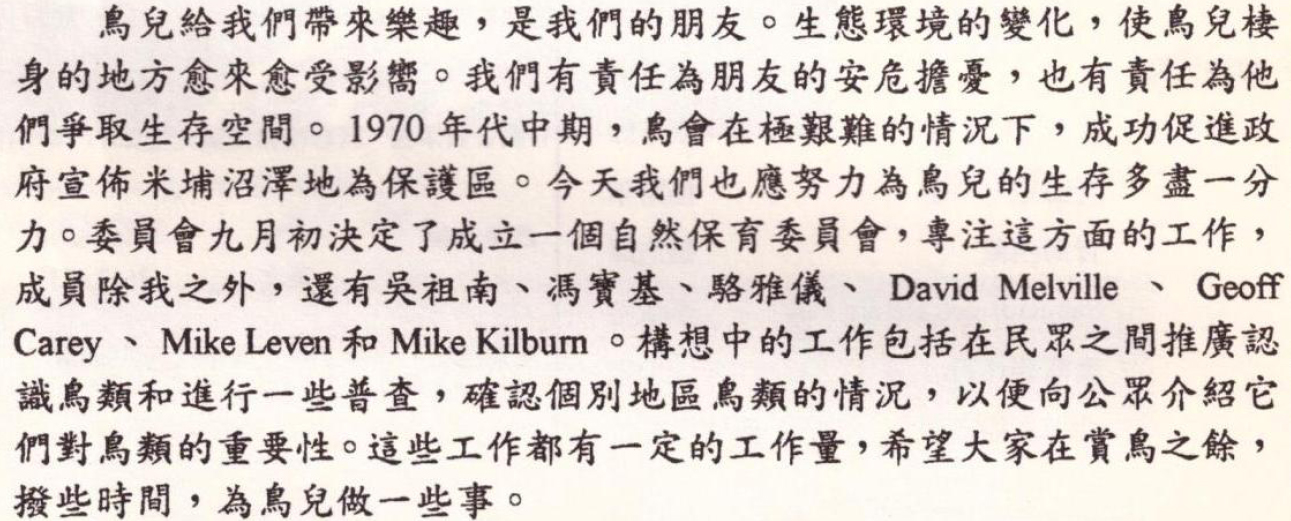 鳥兒給我們帶來樂趣，是我們的朋友。生態環境的變化，使鳥兒棲
身的地方愈來愈受影嚮。我們有責任為朋友的安危擔憂，也有責任為他
們爭取生存空間。1970 年代中期，鳥會在極艱難的情況下，成功促進政
府宣佈米埔沼澤地為保護區。今天我們也應努力為鳥兒的生存多盡一分
力。委員會九月初決定了成立一個自然保育委員會，專注這方面的工作，
成員除我之外，還有吳祖南、馮寶基、駱雅儀、 David Melville 、 Geoff
Carey 、 Mike Leven 和 Mike Kilburn 。構想中的工作包括在民眾之間推廣認
識鳥類和進行一些普查，確認個別地區鳥類的情況，以便向公眾介紹它
們對鳥類的重要性。這些工作都有一定的工作量，希望大家在賞鳥之餘，
撥些時間，為鳥兒做一些事。